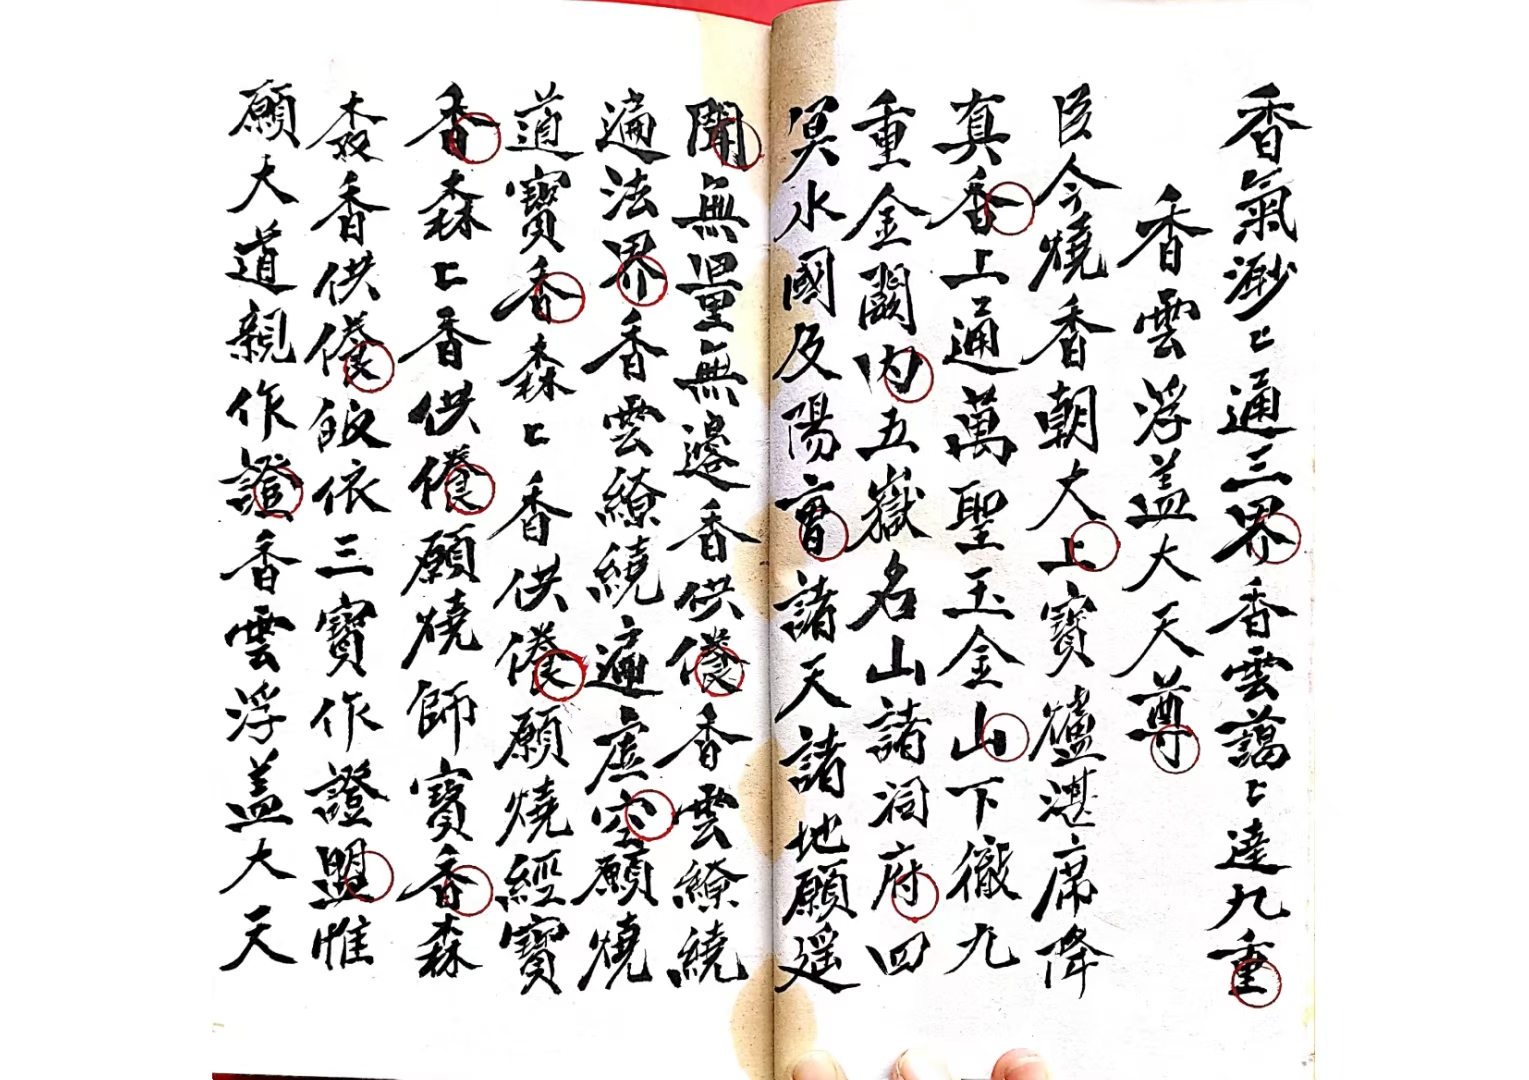 香氣渺〻通三界香雲藹〻達九重
香雲浮盖大天尊
臣今燒香朝大上寶爐湛席降
真香上通萬聖玉金山下徹九
重金闕內五嶽名山諸洞府四
溟水國及陽曹諸天諸地願遥
聞無量無邊香供養香雲繚繞
遍法界香雲繚繞遍虛空願燒
道寶香森〻香供養願燒經寶
香森〻香供養願燒師寶香森
森香供養皈依三寶作證盟惟
願大道親作證香雲浮盖大天